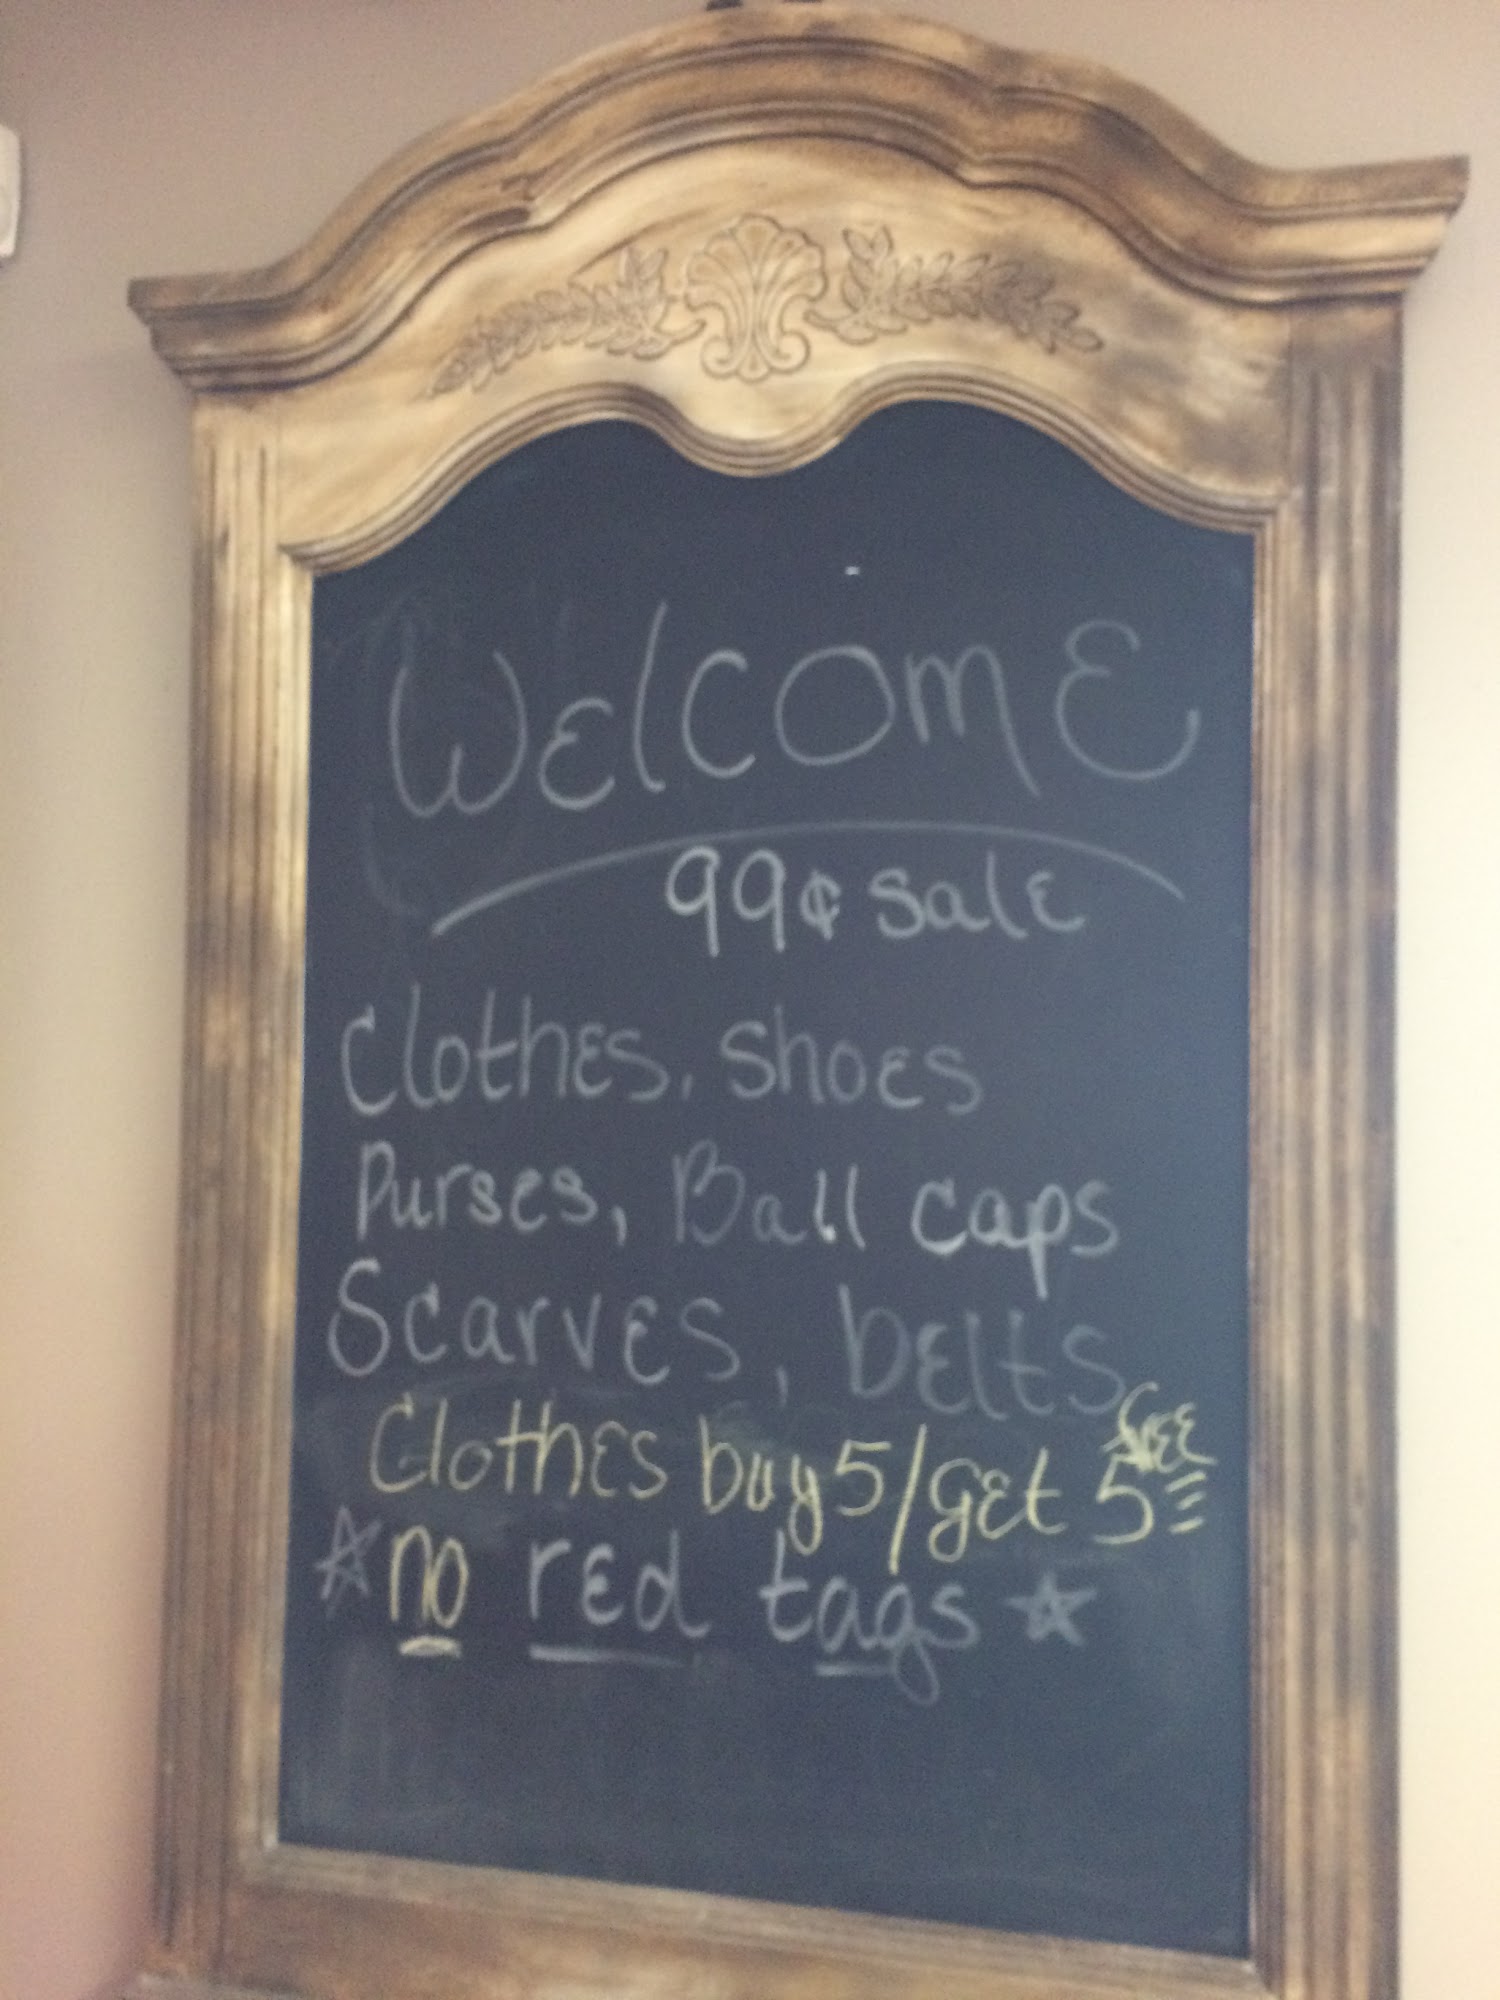 WElcomE
99¢ salE
ClothEs, shoEs
PursEs, Ball caps
ScarvEs, bElts
ClothEs buy 5/gEt 5 frEE
☆ no rEd tags ☆